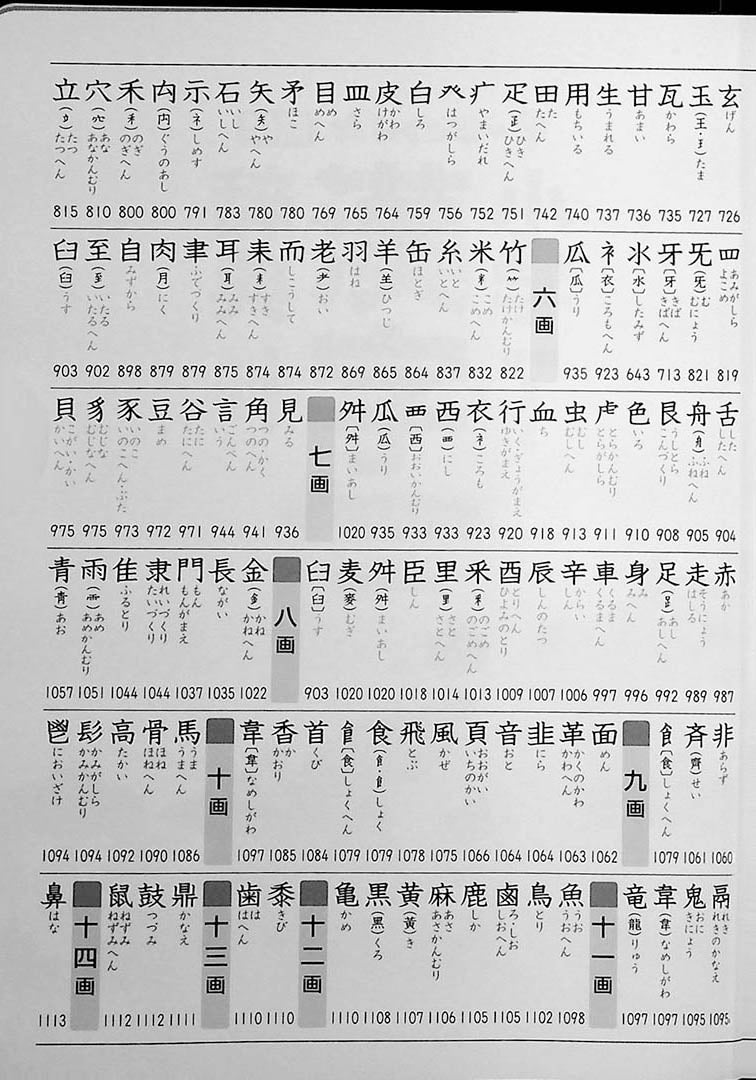 玄 げん 726
玉(王・𤣩)たま 727
瓦 かわら 735
甘 あまい 736
生 うまれる 737
用 もちいる 740
田 た たへん 742
疋(𤴔)ひき ひきへん 751
疒 やまいだれ 752
癶 はつがしら 756
白 しろ 759
皮 かわ けがわ 764
皿 さら 765
目 め めへん 769
矛 ほこ 780
矢(矢)や やへん 780
石 いし いしへん 783
示(礻)しめす 791
禸(禸)ぐうのあし 800
禾(禾)のぎ のぎへん 800
穴(穴)あな あなかんむり 810
立(立)たつ たつへん 815
罒 あみがしら よこめ 819
旡(旡)む むにょう 821
牙〔牙〕きば きばへん 713
氺〔水〕したみず 643
衤〔衣〕ころもへん 923
瓜〔瓜〕うり 935
六画
竹(⺮)たけ たけかんむり 822
米(米)こめ こめへん 832
糸 いと いとへん 837
缶 ほとぎ 864
羊(⺷)ひつじ 865
羽 はね 869
老(耂)おい 872
而 しこうして 874
耒(耒)すき すきへん 874
耳(耳)みみ みみへん 875
聿 ふでつくり 879
肉(月)にく 879
自 みずから 898
至(至)いたる いたるへん 902
臼(臼)うす 903
舌 した したへん 904
舟(舟)ふね ふねへん 905
艮 うしとら こんづくり 908
色 いろ 910
虍 とらかんむり とらがしら 911
虫 むし むしへん 913
血 ち 918
行 いく・ぎょうがまえ ゆきがまえ 920
衣(衤)ころも 923
西(覀)にし 933
覀〔西〕おおいかんむり 933
瓜(瓜)うり 935
舛〔舛〕まいあし 1020
七画
見 みる 936
角 つの・かく つのへん 941
言 ごんべん いう 944
谷 たに たにへん 971
豆 まめ 972
豕 いのこ いのこへん・ぶた 973
豸 むじな むじなへん 975
貝 こがい・かい かいへん 975
赤 あか 987
走 そうにょう はしる 989
足(𧾷)あし あしへん 992
身 み みへん 996
車 くるま くるまへん 997
辛 からい しん 1006
辰 しんのたつ 1007
酉 とりへん ひよみのとり 1009
釆(釆)のごめ のごめへん 1013
里(里)さと さとへん 1014
臣 しん 1018
舛(舛)まいあし 1020
麦(麥)むぎ 1020
臼〔臼〕うす 903
八画
金(釒)かね かねへん 1022
長 ながい 1035
門 もん もんがまえ 1037
隶 れいづくり たいづくり 1044
隹 ふるとり 1044
雨(⻗)あめ あめかんむり 1051
青(靑)あお 1057
非 あらず 1060
斉(齊)せい 1061
飠〔食〕しょくへん 1079
九画
面 めん 1062
革 かくのかわ かわへん 1063
韭 にら 1064
音 おと 1064
頁 おおがい いちのかい 1066
風 かぜ 1075
飛 とぶ 1078
食(飠・𩙿)しょく 1079
飠〔食〕しょくへん 1079
首 くび 1084
香 か かおり 1085
韋〔韋〕なめしがわ 1097
十画
馬 うま うまへん 1086
骨 ほね ほねへん 1090
高 たかい 1092
髟 かみがしら かみかんむり 1094
鬯 においざけ 1094
鬲 れき れきのかなえ 1095
鬼 おに きにょう 1095
韋(韋)なめしがわ 1097
竜(龍)りゅう 1097
十一画
魚 うお うおへん 1098
鳥 とり 1102
鹵 ろ・しお しおへん 1105
鹿 しか 1105
麻 あさ あさかんむり 1106
黄(黃)き 1107
黒(黑)くろ 1108
亀 かめ 1110
十二画
黍 きび 1110
歯 は はへん 1110
十三画
鼎 かなえ 1111
鼓 つづみ 1112
鼠 ねずみ ねずみへん 1112
十四画
鼻 はな 1113